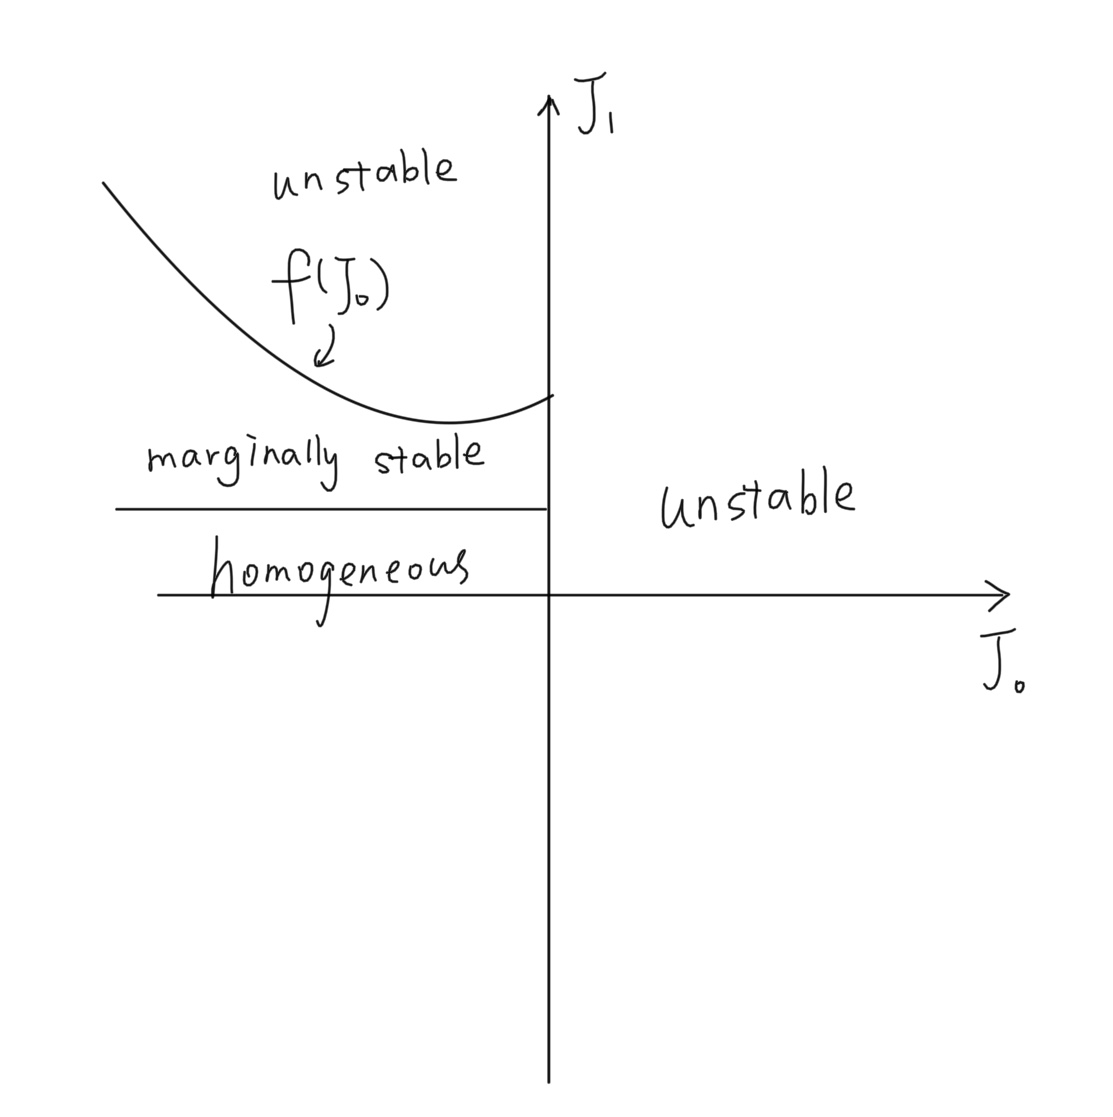 J₁
unstable
f(J₀)
marginally stable
unstable
homogeneous
J₀